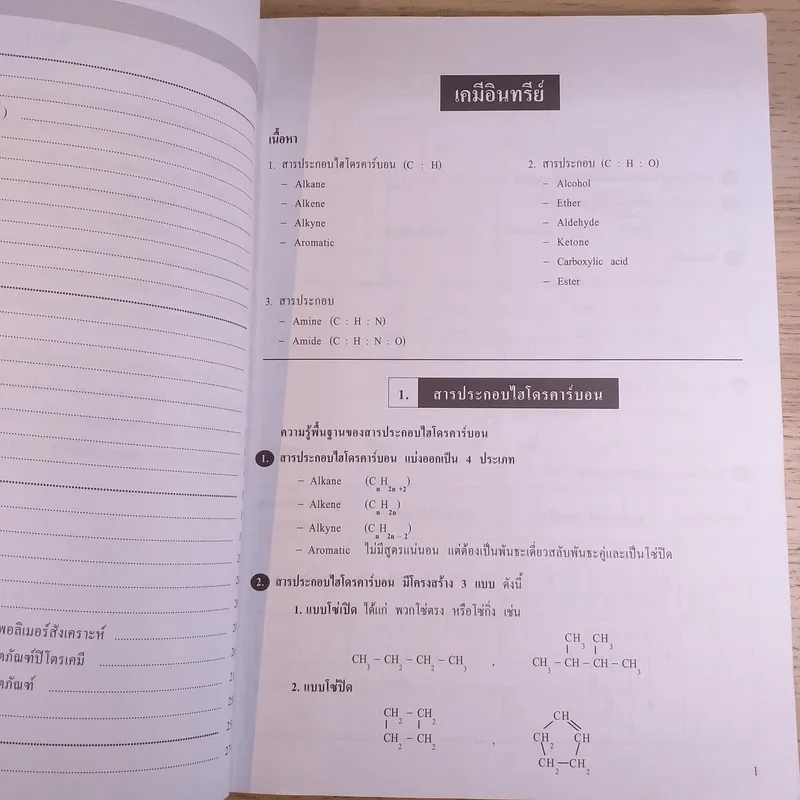 )
พอลิเมอร์สังเคราะห์
ตภัณฑ์ปิโตรเคมี
ตภัณฑ์
เคมีอินทรีย์
เนื้อหา
1. สารประกอบไฮโดรคาร์บอน (C : H)
– Alkane
– Alkene
– Alkyne
– Aromatic
2. สารประกอบ (C : H : O)
– Alcohol
– Ether
– Aldehyde
– Ketone
– Carboxylic acid
– Ester
3. สารประกอบ
– Amine (C : H : N)
– Amide (C : H : N : O)
1. สารประกอบไฮโดรคาร์บอน
ความรู้พื้นฐานของสารประกอบไฮโดรคาร์บอน
1. สารประกอบไฮโดรคาร์บอน แบ่งออกเป็น 4 ประเภท
– Alkane (CnH2n+2)
– Alkene (CnH2n)
– Alkyne (CnH2n–2)
– Aromatic ไม่มีสูตรแน่นอน แต่ต้องเป็นพันธะเดี่ยวสลับพันธะคู่และเป็นโซ่ปิด
2. สารประกอบไฮโดรคาร์บอน มีโครงสร้าง 3 แบบ ดังนี้
1. แบบโซ่เปิด ได้แก่ พวกโซ่ตรง หรือโซ่กิ่ง เช่น
CH3 CH3
CH3 – CH2 – CH2 – CH3 , CH3 – CH – CH – CH3
2. แบบโซ่ปิด
CH2 – CH2
CH2 – CH2
,
CH
CH2 CH
CH2 — CH2
1